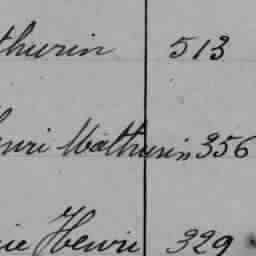 thurin 513
enri Mathurin 356
ie Henri 329